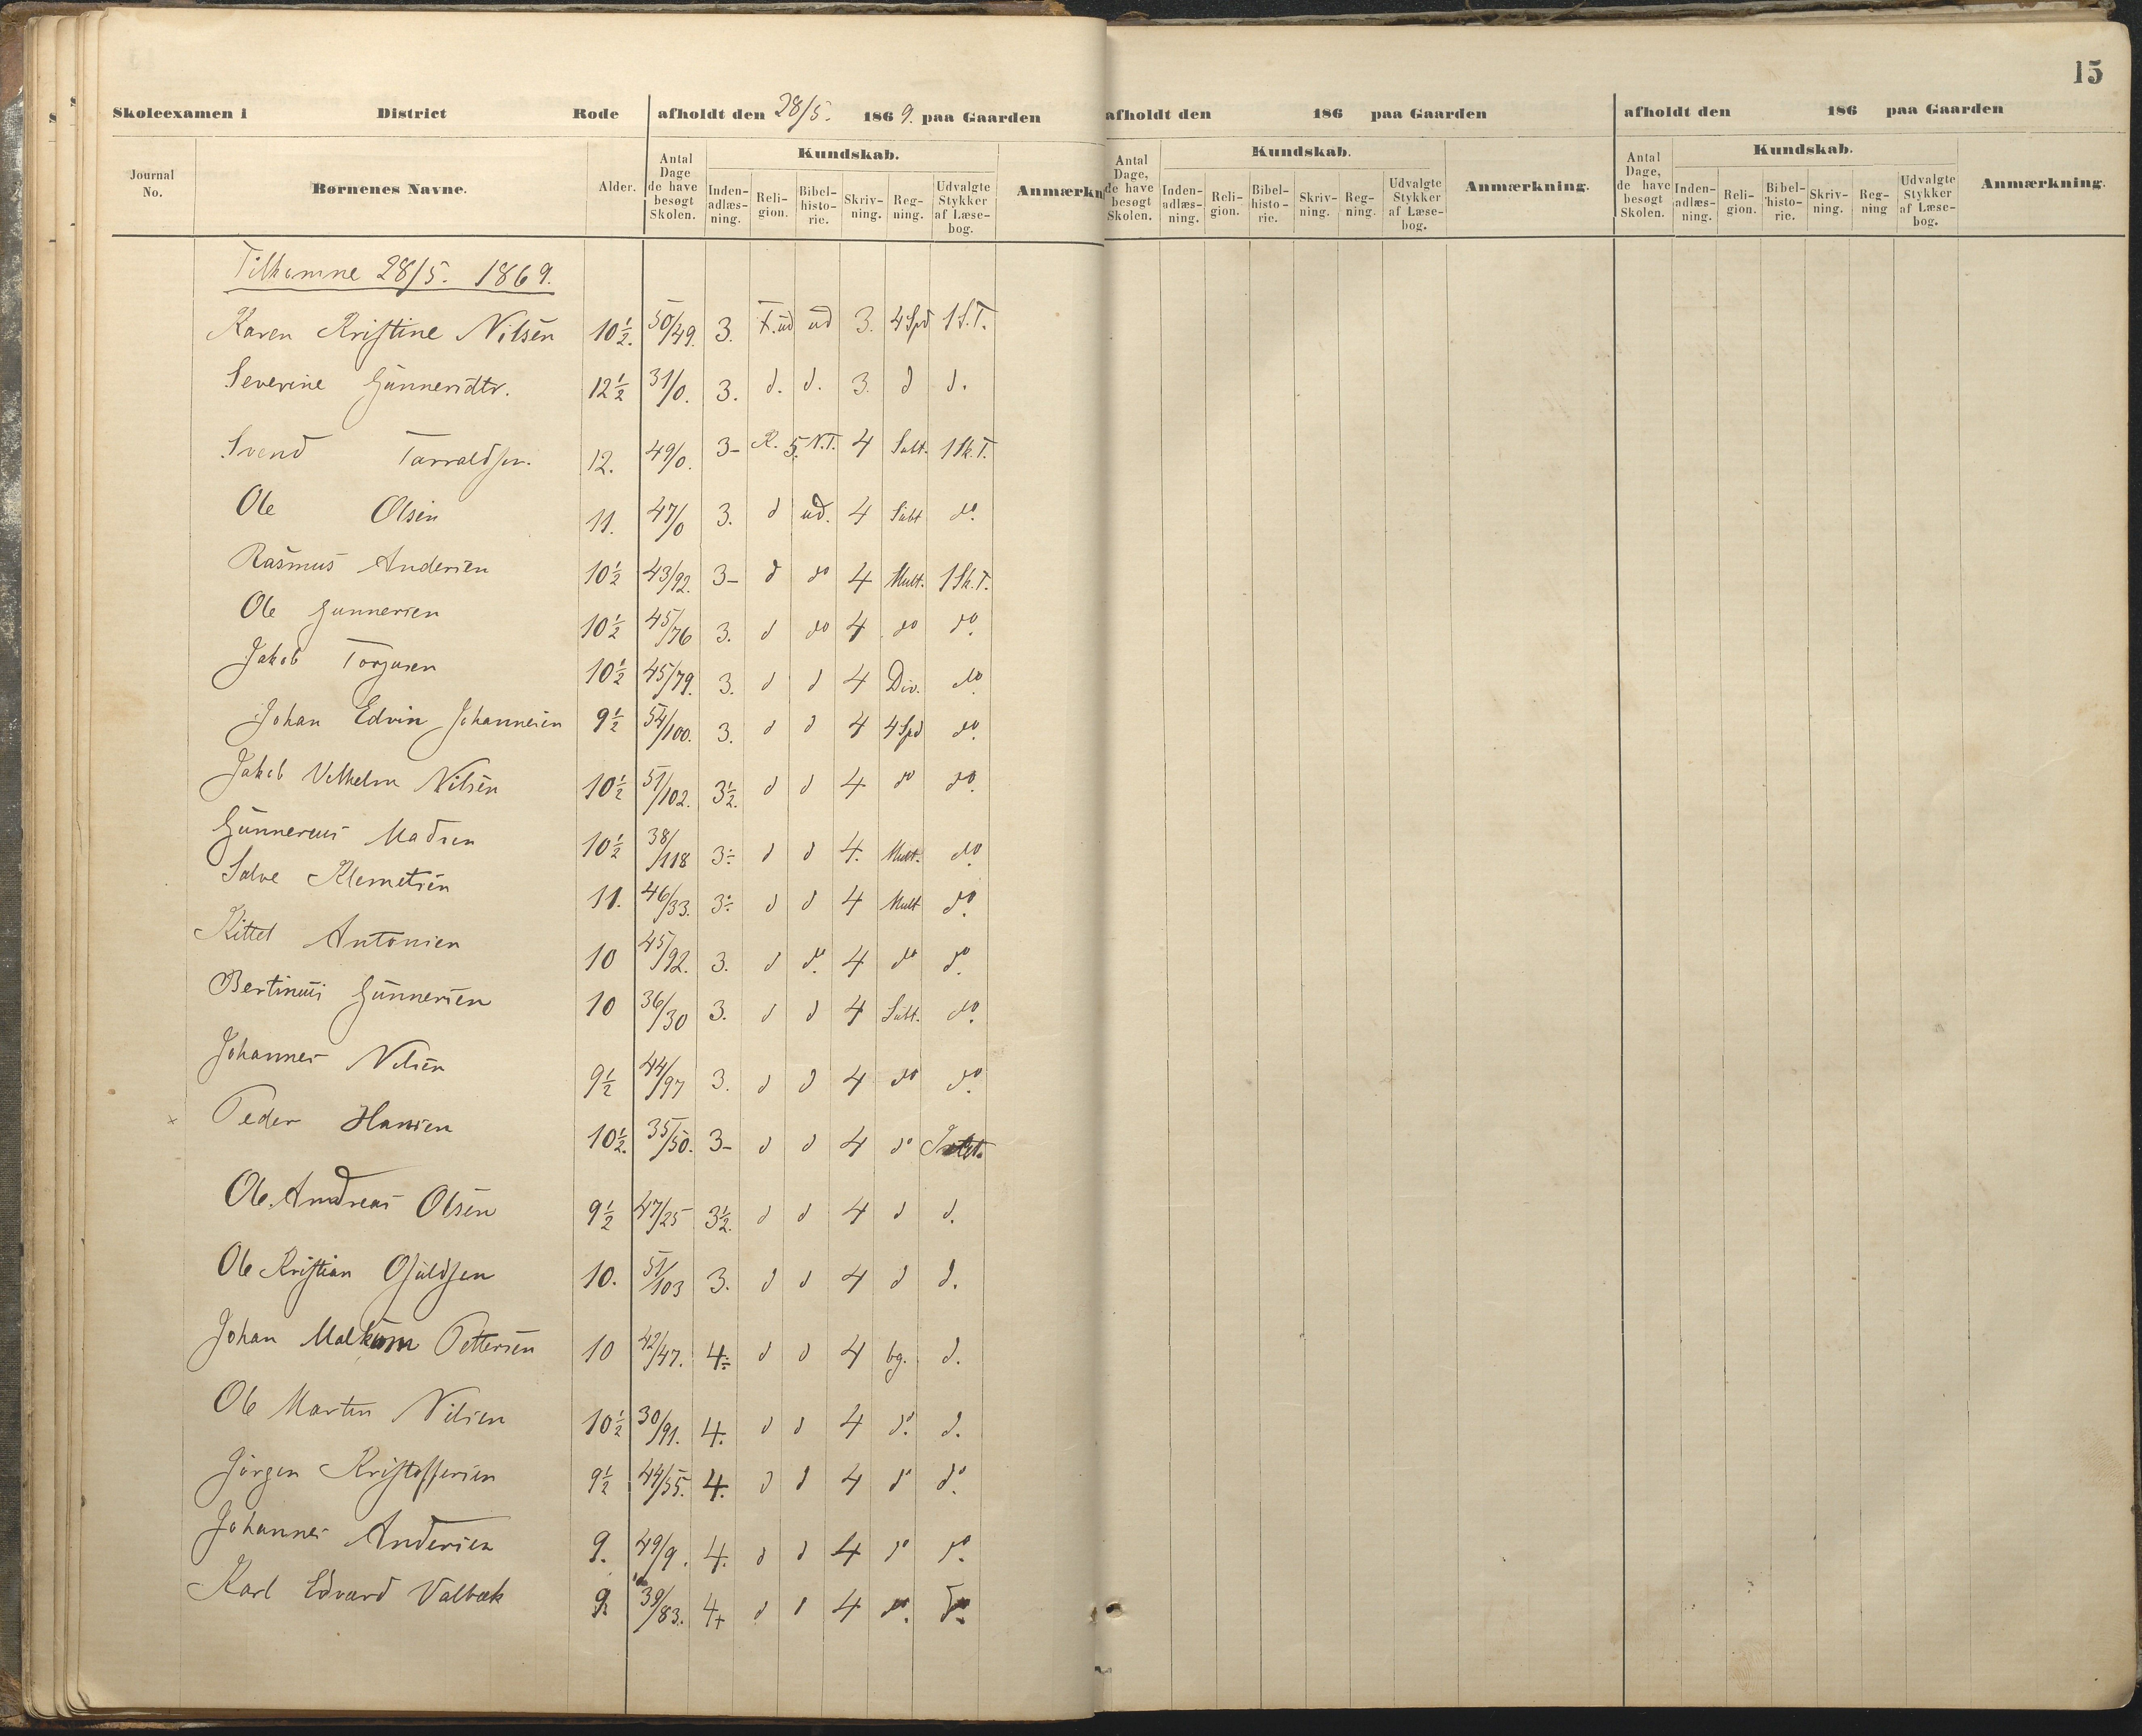 15
Skoleexamen i District Rode afholdt den 28/5. 1869. paa Gaarden
afholdt den 186 paa Gaarden
afholdt den 186 paa Gaarden
Journal No. Børnenes Navne. Alder. Antal Dage de have besøgt Skolen. Kundskab. Inden-adlæs-ning. Reli-gion. Bibel-histo-rie. Skriv-ning. Reg-ning. Udvalgte Stykker af Læse-bog. Anmærkn
Antal Dage, de have besøgt Skolen. Kundskab. Inden-adlæs-ning. Reli-gion. Bibel-histo-rie. Skriv-ning. Reg-ning. Udvalgte Stykker af Læse-bog. Anmærkning.
Antal Dage, de have besøgt Skolen. Kundskab. Inden-adlæs-ning. Reli-gion. Bibel-histo-rie. Skriv-ning. Reg-ning Udvalgte Stykker af Læse-bog. Anmærkning.
28/5. 1869.
Karen Kristine Nilsen 10½. 50/49. 3. F. ud ud 3. 4 Spd 1 S.T.
Severine Gunnersdtr. 12½ 31/0. 3. d. d. 3. d d.
Svend Tarraldsen. 12. 49/0. 3- R. 5. N.T. 4 Subt. 1 Sk.T.
Ole Olsen 11. 47/0 3. d ud. 4 Subt do.
Rasmus Andersen 10½ 43/92. 3- d do 4 Mult. 1 Sk.T.
Ole Gunnersen 10½ 45/76 3. d do 4 do do.
Jakob Torjusen 10½ 45/79. 3. d d 4 Div. do.
Johan Edvin Johannesen 9½ 54/100. 3. d d 4 4 Spd do.
Jakob Vilhelm Nilsen 10½ 51/102. 3½. d d 4 do do.
Gunnerius Madsen 10½ 38/118 3÷ d d 4. Mult. do.
Salve Klemetsen 11. 46/33. 3÷ d d 4 Mult do.
Kittel Antonsen 10 45/92. 3. d do. 4 do do.
Bertinius Gunnersen 10 36/30 3. d d 4 Subt. do.
Johannes Nilsen 9½ 44/97 3. d d 4 do do.
x Peder Hansen 10½. 35/50. 3- d d 4 do Intet.
Ole Andreas Olsen 9½ 47/25 3½. d d 4 d d.
Ole Kristian Osuldsen 10. 51/103 3. d d 4 d d.
Johan Malkum Pettersen 10 42/47. 4÷ d d 4 bg. d.
Ole Martin Nilsen 10½ 30/91. 4. d d 4 do. d.
Jørgen Kristoffersen 9½ 44/55. 4. d d 4 do do.
Johannes Andersen 9. 49/9. 4. d d 4 do do.
Karl Edvard Valbæk 9. 39/83. 4+ d d 4 do. do.